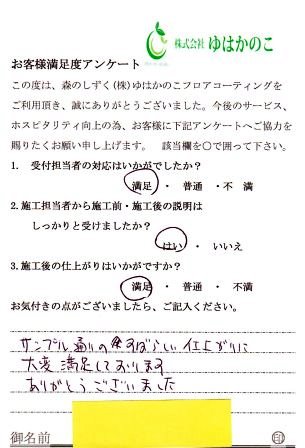 株式会社 ゆはかのこ
お客様満足度アンケート
この度は、森のしずく(株)ゆはかのこフロアコーティングを
ご利用頂き、誠にありがとうございました。今後のサービス、
ホスピタリティ向上の為、お客様に下記アンケートへご協力を
賜りたくお願い申し上げます。 該当欄を○で囲って下さい。
1. 受付担当者の対応はいかがでしたか？
満足 ・ 普通 ・ 不 満
2.施工担当者から施工前・施工後の説明は
しっかりと受けましたか？
はい ・ いいえ
3.施工後の仕上がりはいかがですか？
満足 ・ 普通 ・ 不 満
お気付きの点がございましたら、ご記入ください。
サンプル通りの すばらしい仕上がりに
大変満足しております
ありがとうございました
御名前 印